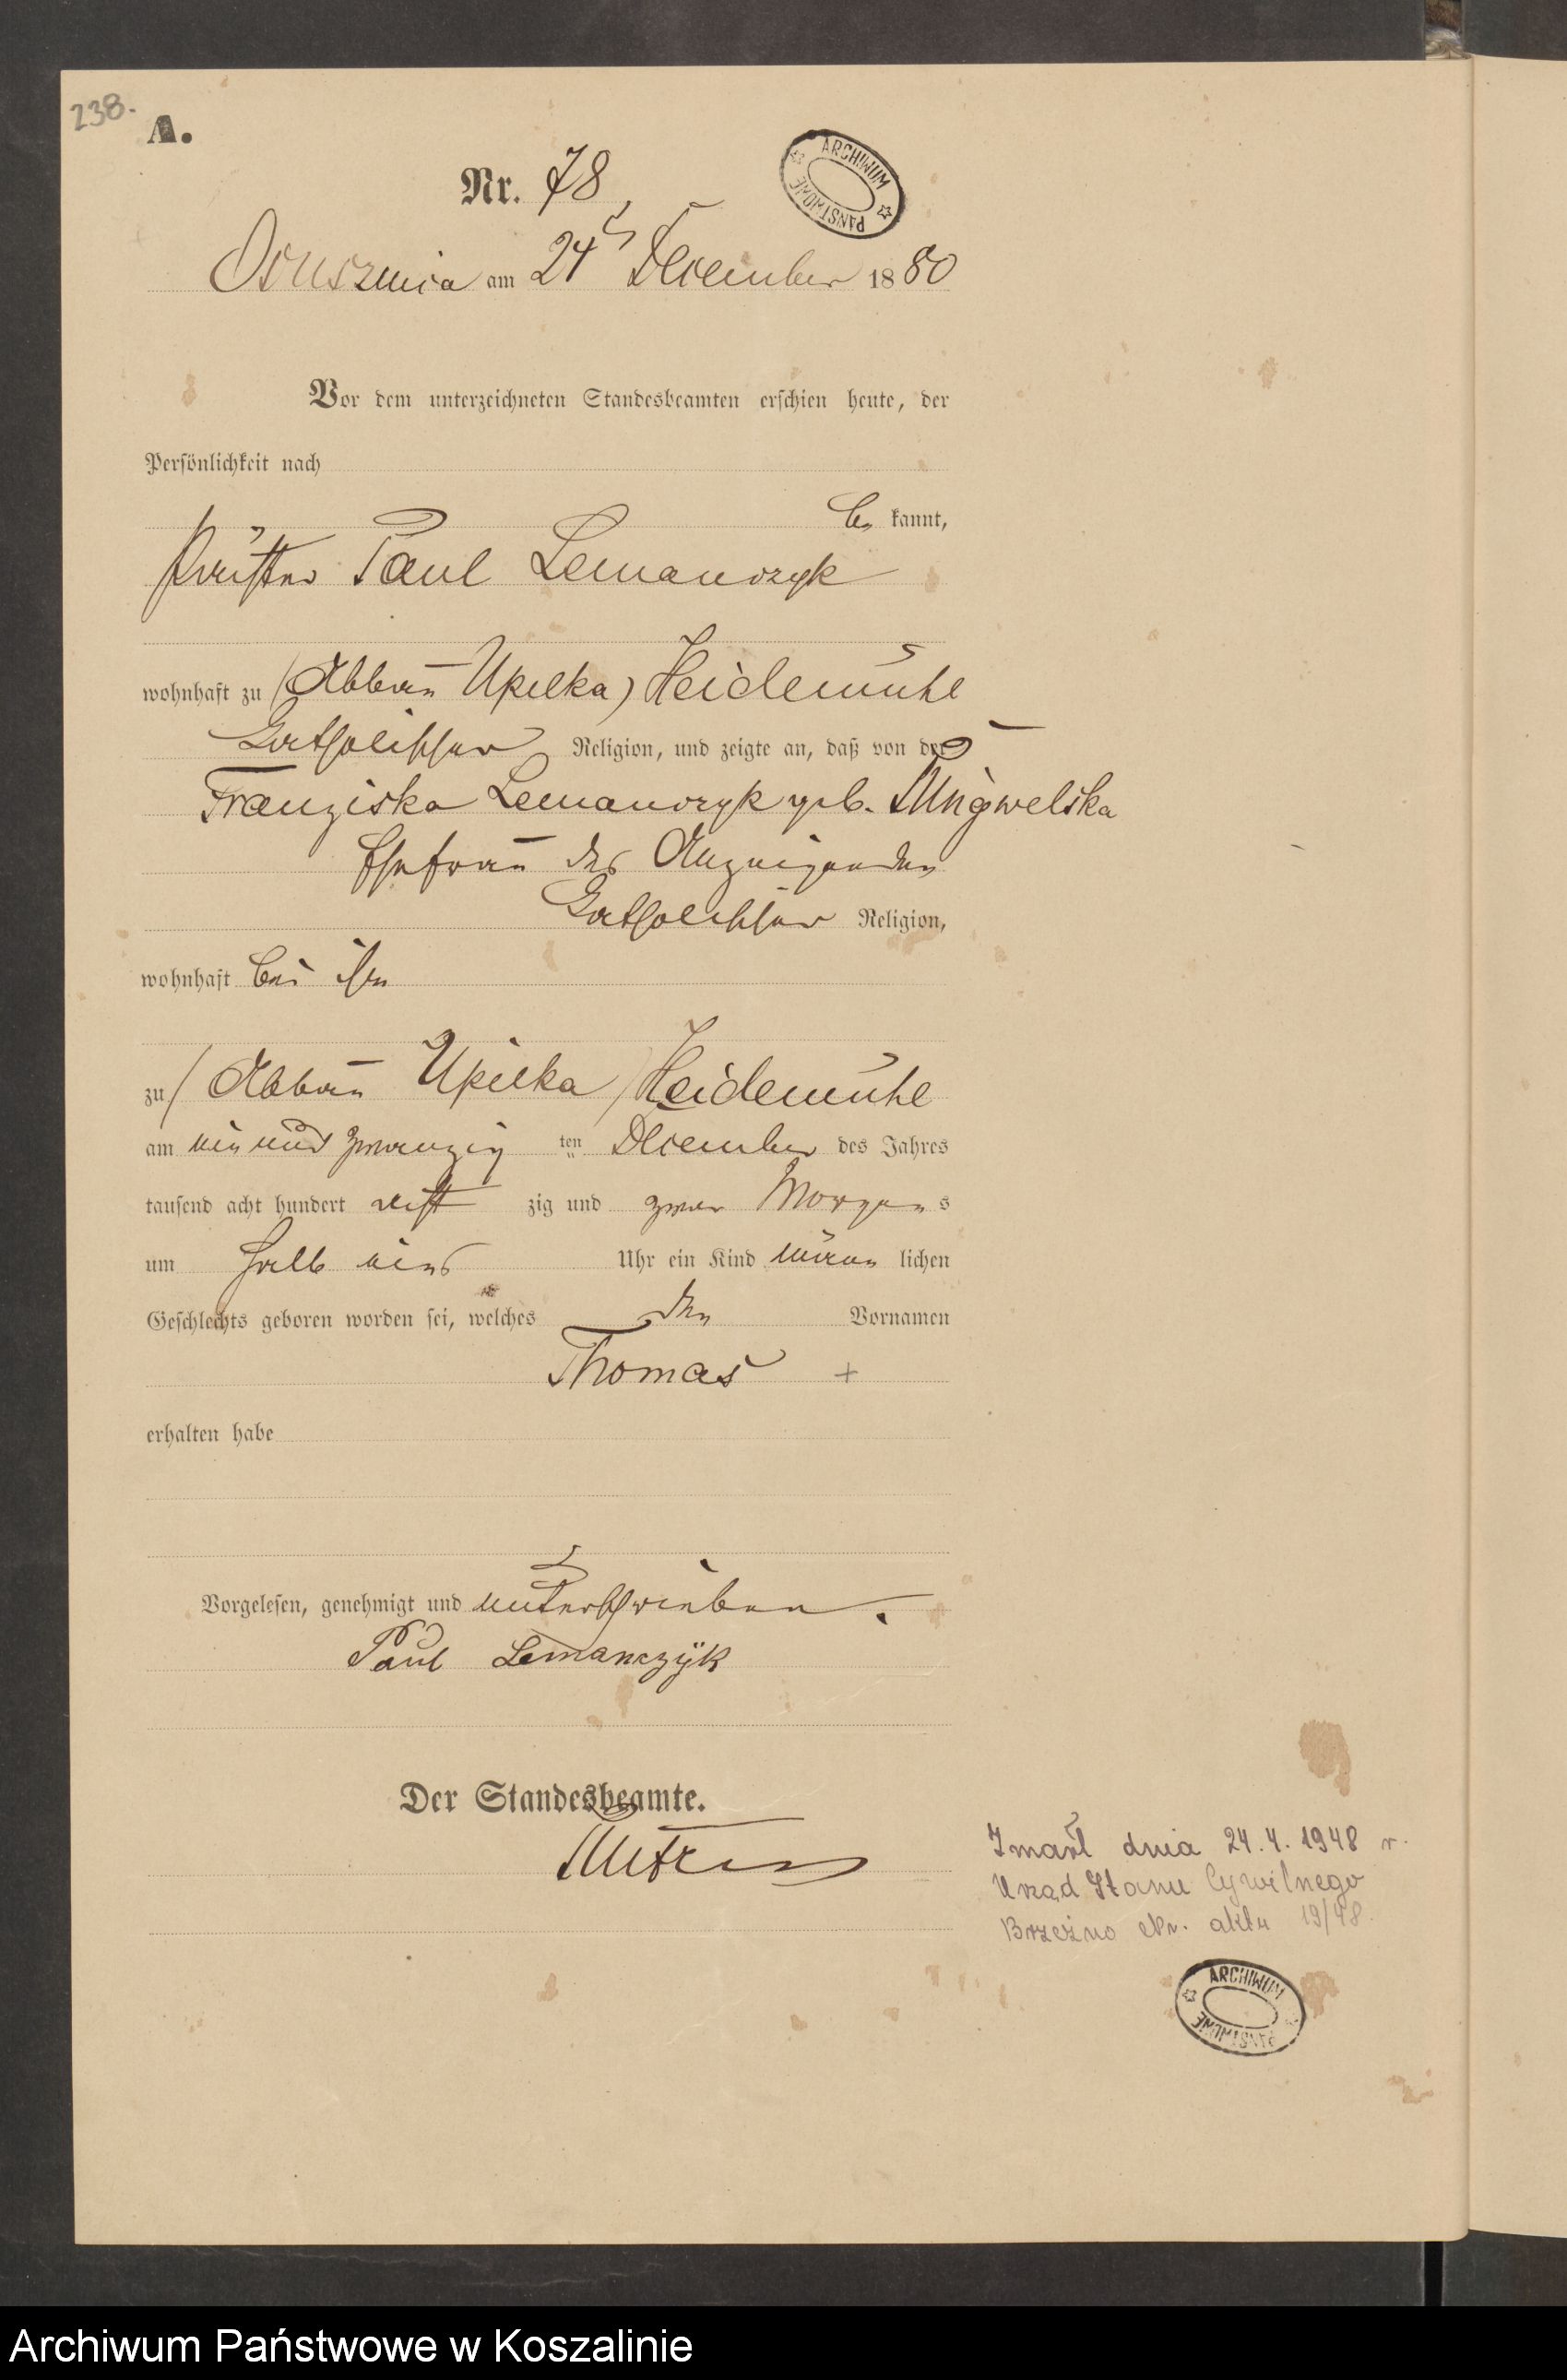 238.
A.
Nr. 78
ARCHIWUM PAŃSTWOWE
Osusznica am 24 December 1880
Vor dem unterzeichneten Standesbeamten erschien heute, der
Persönlichkeit nach
be kannt,
Paul Lemanczyk
wohnhaft zu (Abbau Upilka) Heidemühl
katholischer Religion, und zeigte an, daß von der
Franziska Lemanczyk geb.
Ehefrau des Anzeigenden
katholischer Religion,
wohnhaft bei ihm
zu (Abbau Upilka) Heidemühl
am ein und zwanzig ten December des Jahres
tausend acht hundert acht zig und zwar Morgens
um halb eins Uhr ein Kind männ lichen
Geschlechts geboren worden sei, welches den Vornamen
Thomas +
erhalten habe
Vorgelesen, genehmigt und unterschrieben.
Paul Lemanczyk
Der Standesbeamte.
Zmarł dnia 24.4.1948 r.
Urząd Stanu Cywilnego
Brzeźno Nr. aktu 19/48.
ARCHIWUM PAŃSTWOWE
Archiwum Państwowe w Koszalinie